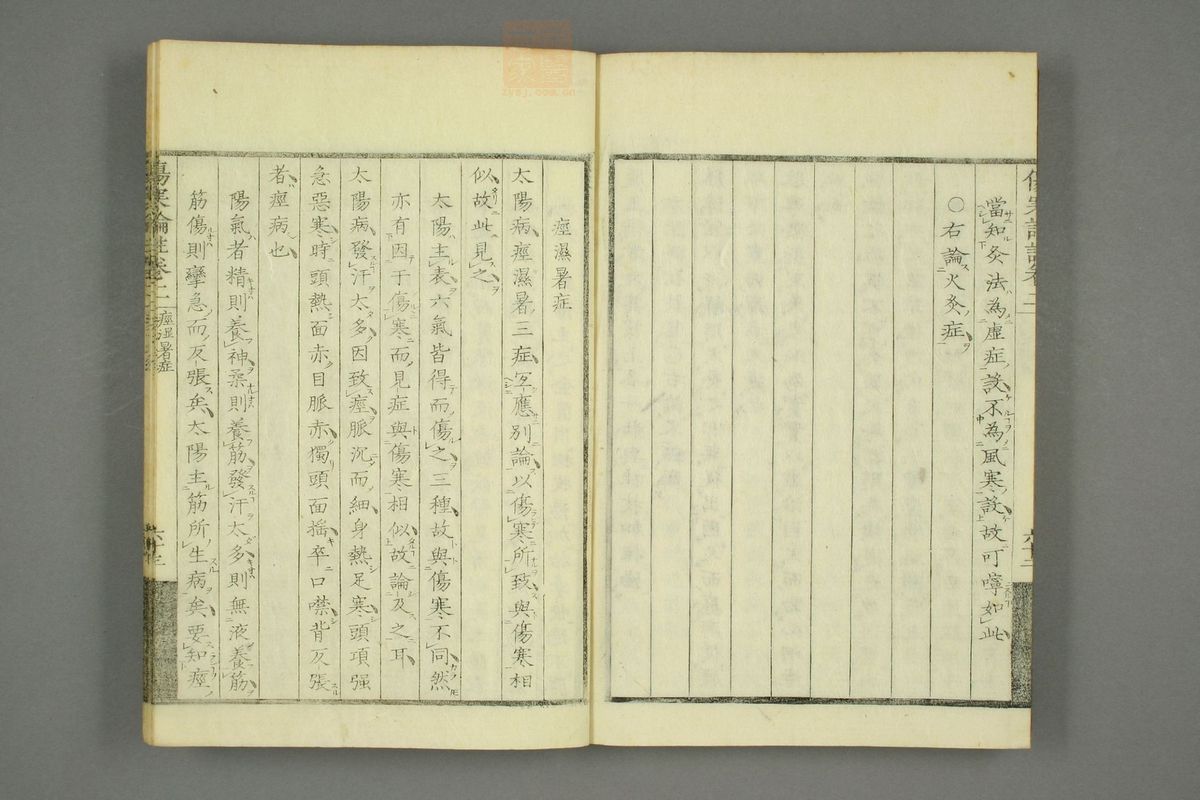 當知灸法為虛症設不為風寒設故叮嚀如此
○右論火灸症
痙濕暑症
太陽病痙濕暑三症宜應別論以傷寒所致與傷寒相
似故此見之
太陽主表六氣皆得而傷之三種故與傷寒不同然
亦有因于傷寒而見症與傷寒相似故論及之耳
太陽病發汗太多因致痙脈沉而細身熱足寒頭項强
急惡寒時頭熱面赤目脈赤獨頭面搖卒口噤背反張
者痙病也
陽氣者精則養神柔則養筋發汗太多則無液養筋
筋傷則攣急而反張矣太陽主筋所生病矣要知痙
傷寒論註卷二
痙濕暑症
zysj.com.cn